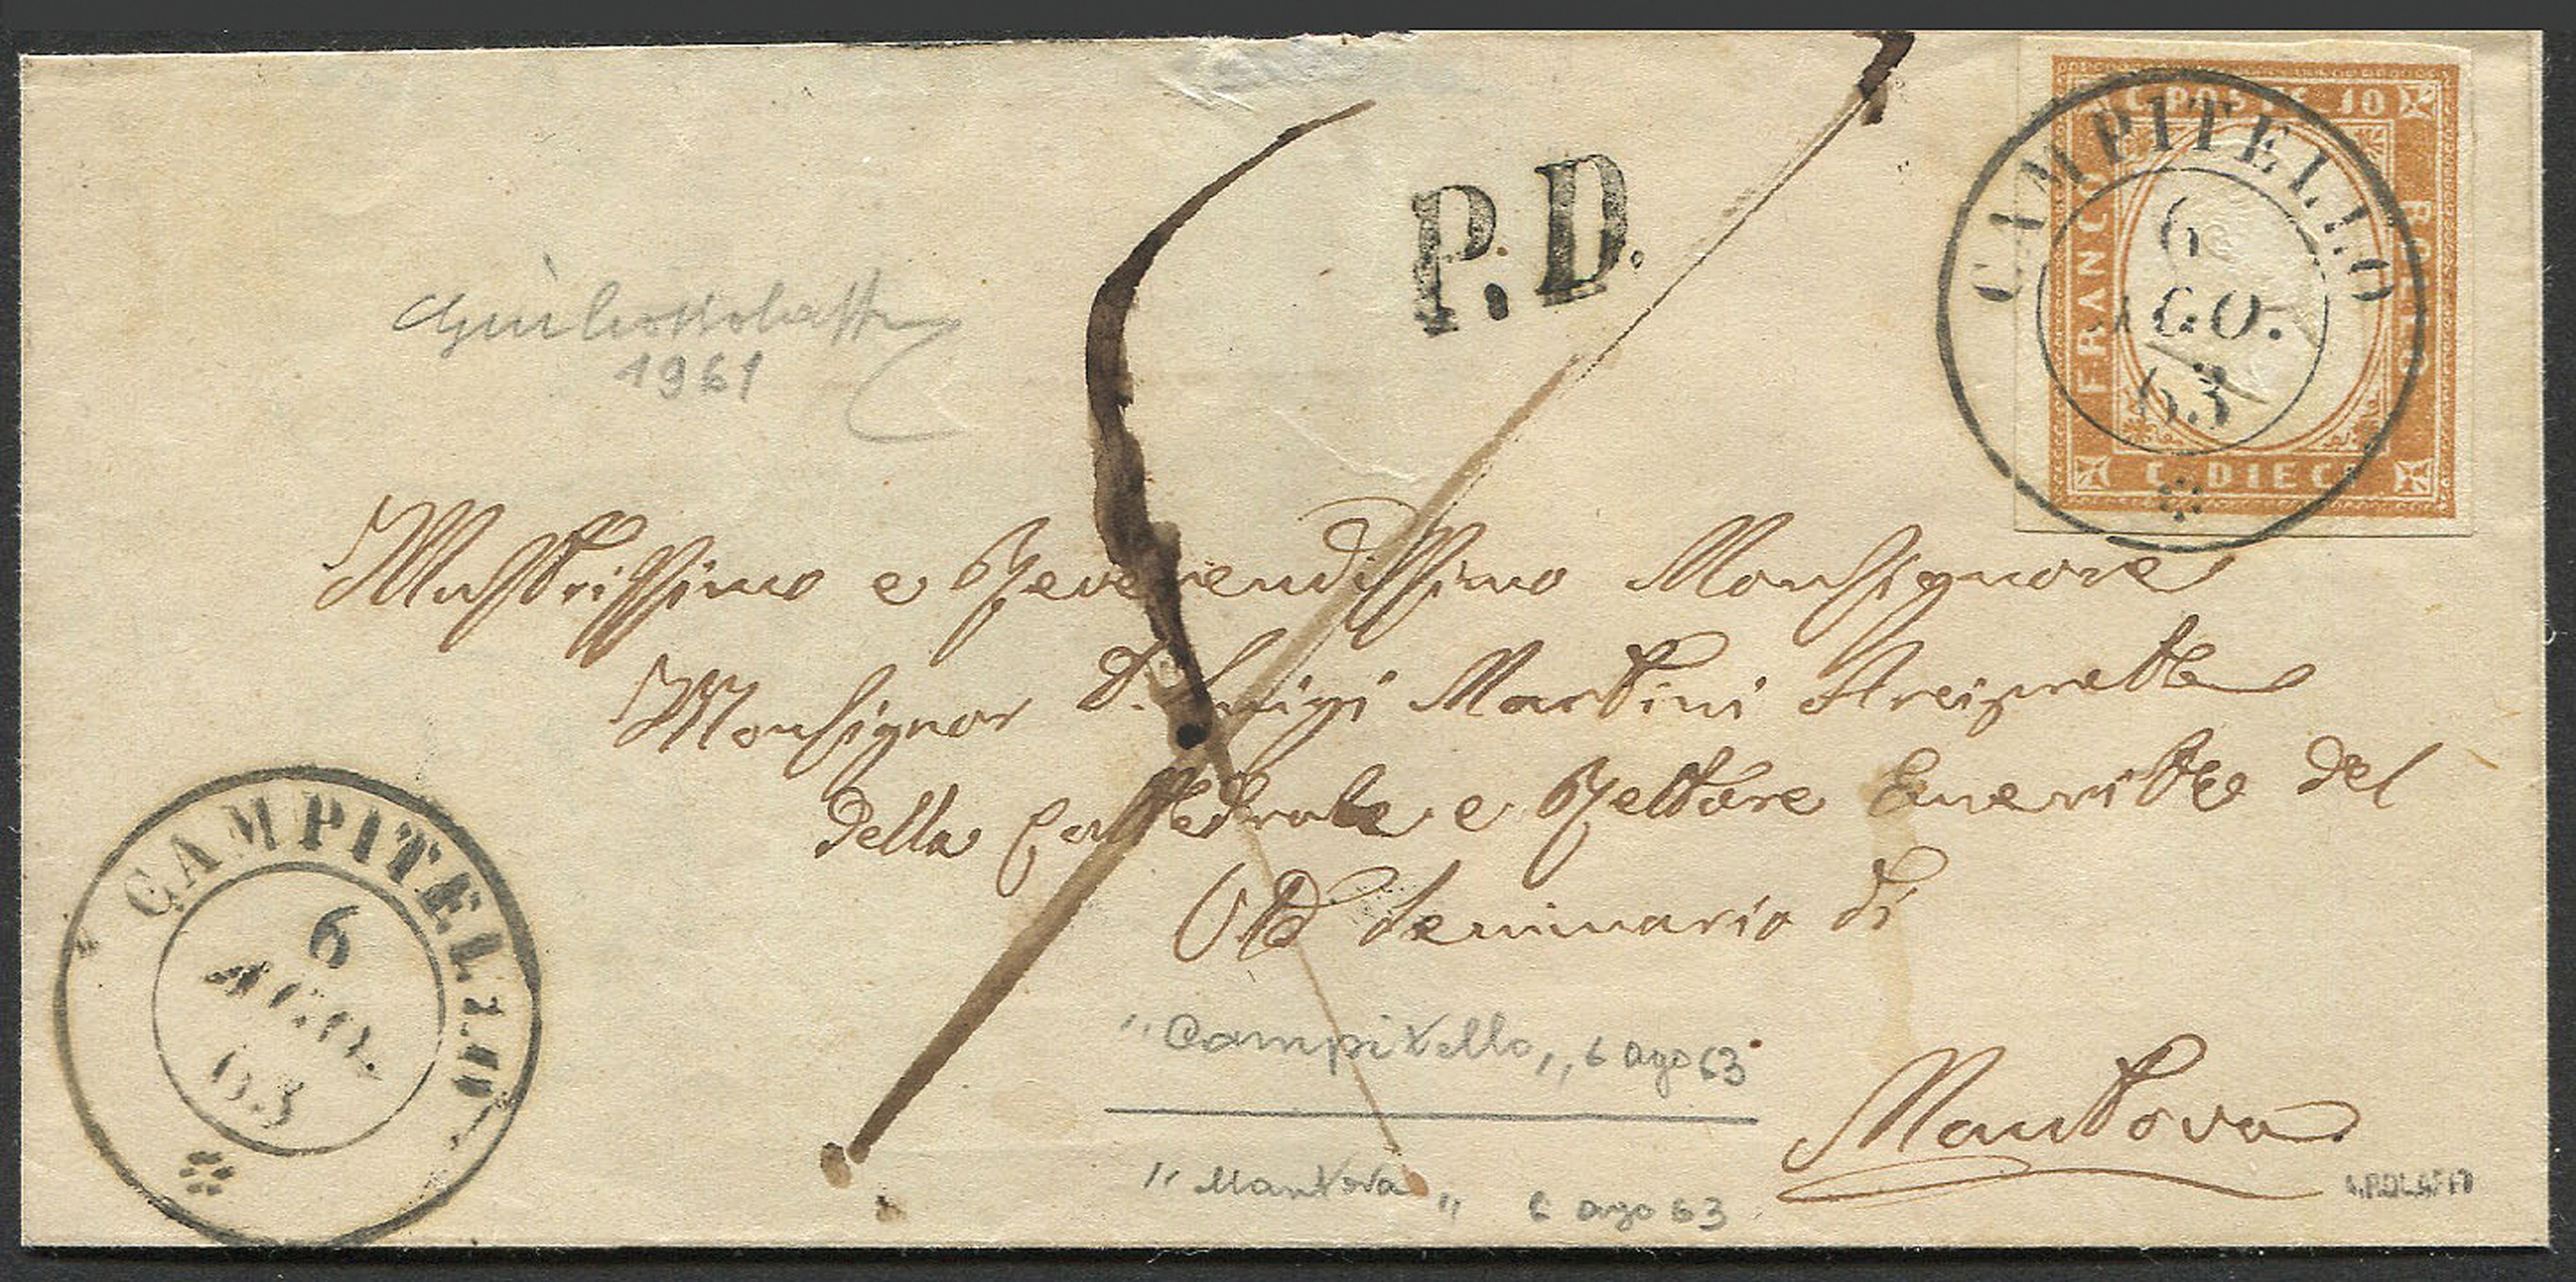 C. POSTE 10
FRANCO
BOLLO
C. DIECI
CAMPITELLO
6
AGO.
63
P.D.
1961
Illustrissimo e Reverendissimo Monsignore
Monsignor D. Luigi Martini Arciprette
della Cattedrale e Rettore Emeritto del
Seminario di
Mantova
CAMPITELLO
6
AGO.
63
"Campitello" 6 ago 63
"Mantova" 6 ago 63